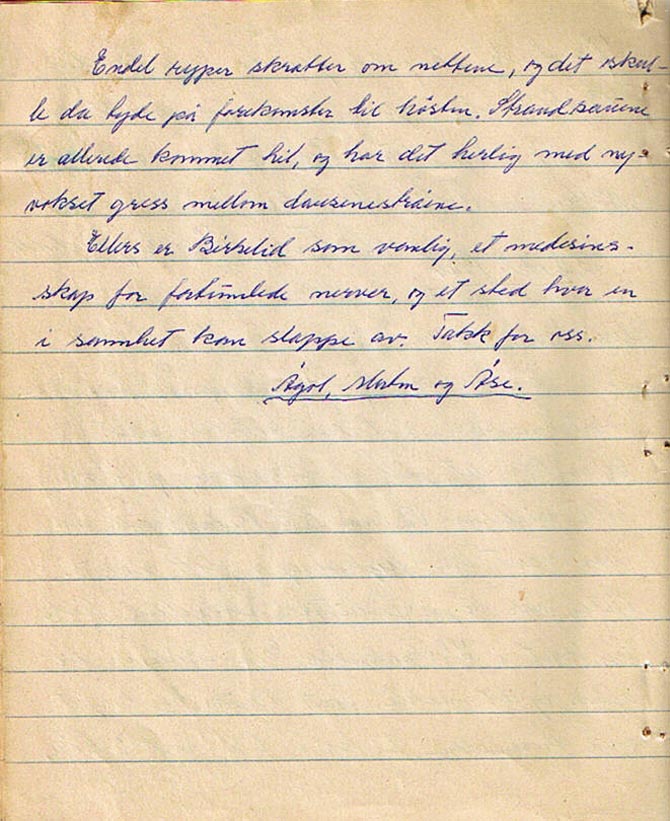 Endel ryper skratter om nettene, og det skul-
le da tyde på forekomster til hösten. Strandsauene
er allerede kommet hit, og har det herlig med ny-
vokset gress mellom
Ellers er Birkelid som vanlig, et medesins-
skap for fortumlede nerver, og et sted hvor en
i sannhet kan slappe av. Takk for oss.
og Åse.